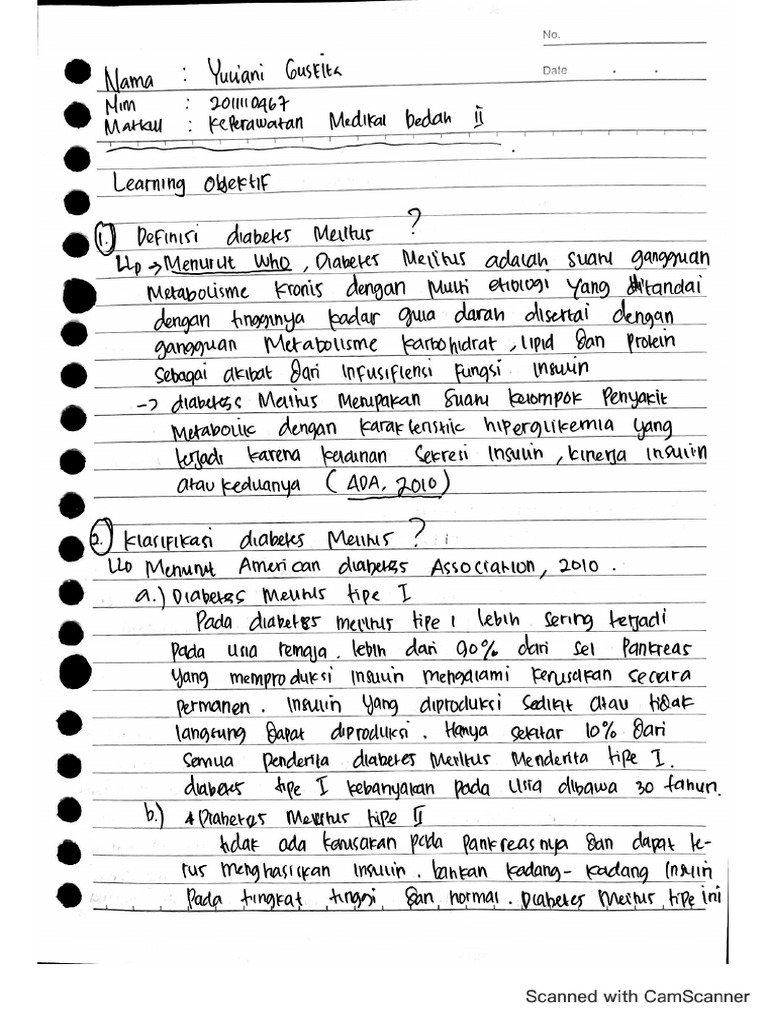 No.
Date . .
Nama : Yuliani Guskita
Nim : 2011110467
Matkul : Keperawatan Medikal bedah II
Learning Objektif
1. Definisi diabetes Melitus ?
→ Menurut WHO, Diabetes Melitus adalah suatu gangguan
Metabolisme kronis dengan Multi etiologi yang ditandai
dengan tingginya kadar gula darah disertai dengan
gangguan Metabolisme karbohidrat, lipid dan protein
sebagai akibat dari infusifiensi fungsi insulin
→ diabetes Melitus Merupakan Suatu kelompok Penyakit
Metabolik dengan karakteristic hiperglikemia yang
terjadi karena kelainan sekresi insulin, kinerja insulin
atau keduanya (ADA, 2010)
2. Klasifikasi diabetes Melitus ?
Menurut American diabetes Association, 2010.
a.) Diabetes Melitus tipe I
Pada diabetes melitus tipe 1 lebih sering terjadi
Pada usia remaja. lebih dari 90% dari sel Pankreas
yang memproduksi insulin mengalami kerusakan secara
permanen. Insulin yang diproduksi sedikit atau tidak
langsung dapat diproduksi. Hanya sekitar 10% dari
semua penderita diabetes Melitus Menderita tipe I.
diabetes tipe I kebanyakan pada usia dibawa 30 tahun.
b.) Diabetes Melitus tipe II
tidak ada kerusakan pada pankreasnya dan dapat te-
rus menghasilkan insulin. bahkan kadang-kadang insulin
Pada tingkat tinggi dan normal. Diabetes Melitus tipe ini
Scanned with CamScanner